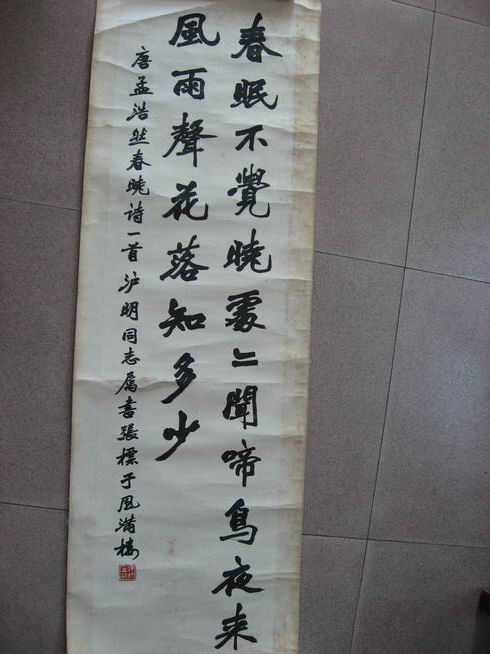 春眠不覺曉處〻聞啼鳥夜来
風雨聲花落知多少
唐孟浩然春曉诗一首沪明同志属書張標于風满楼